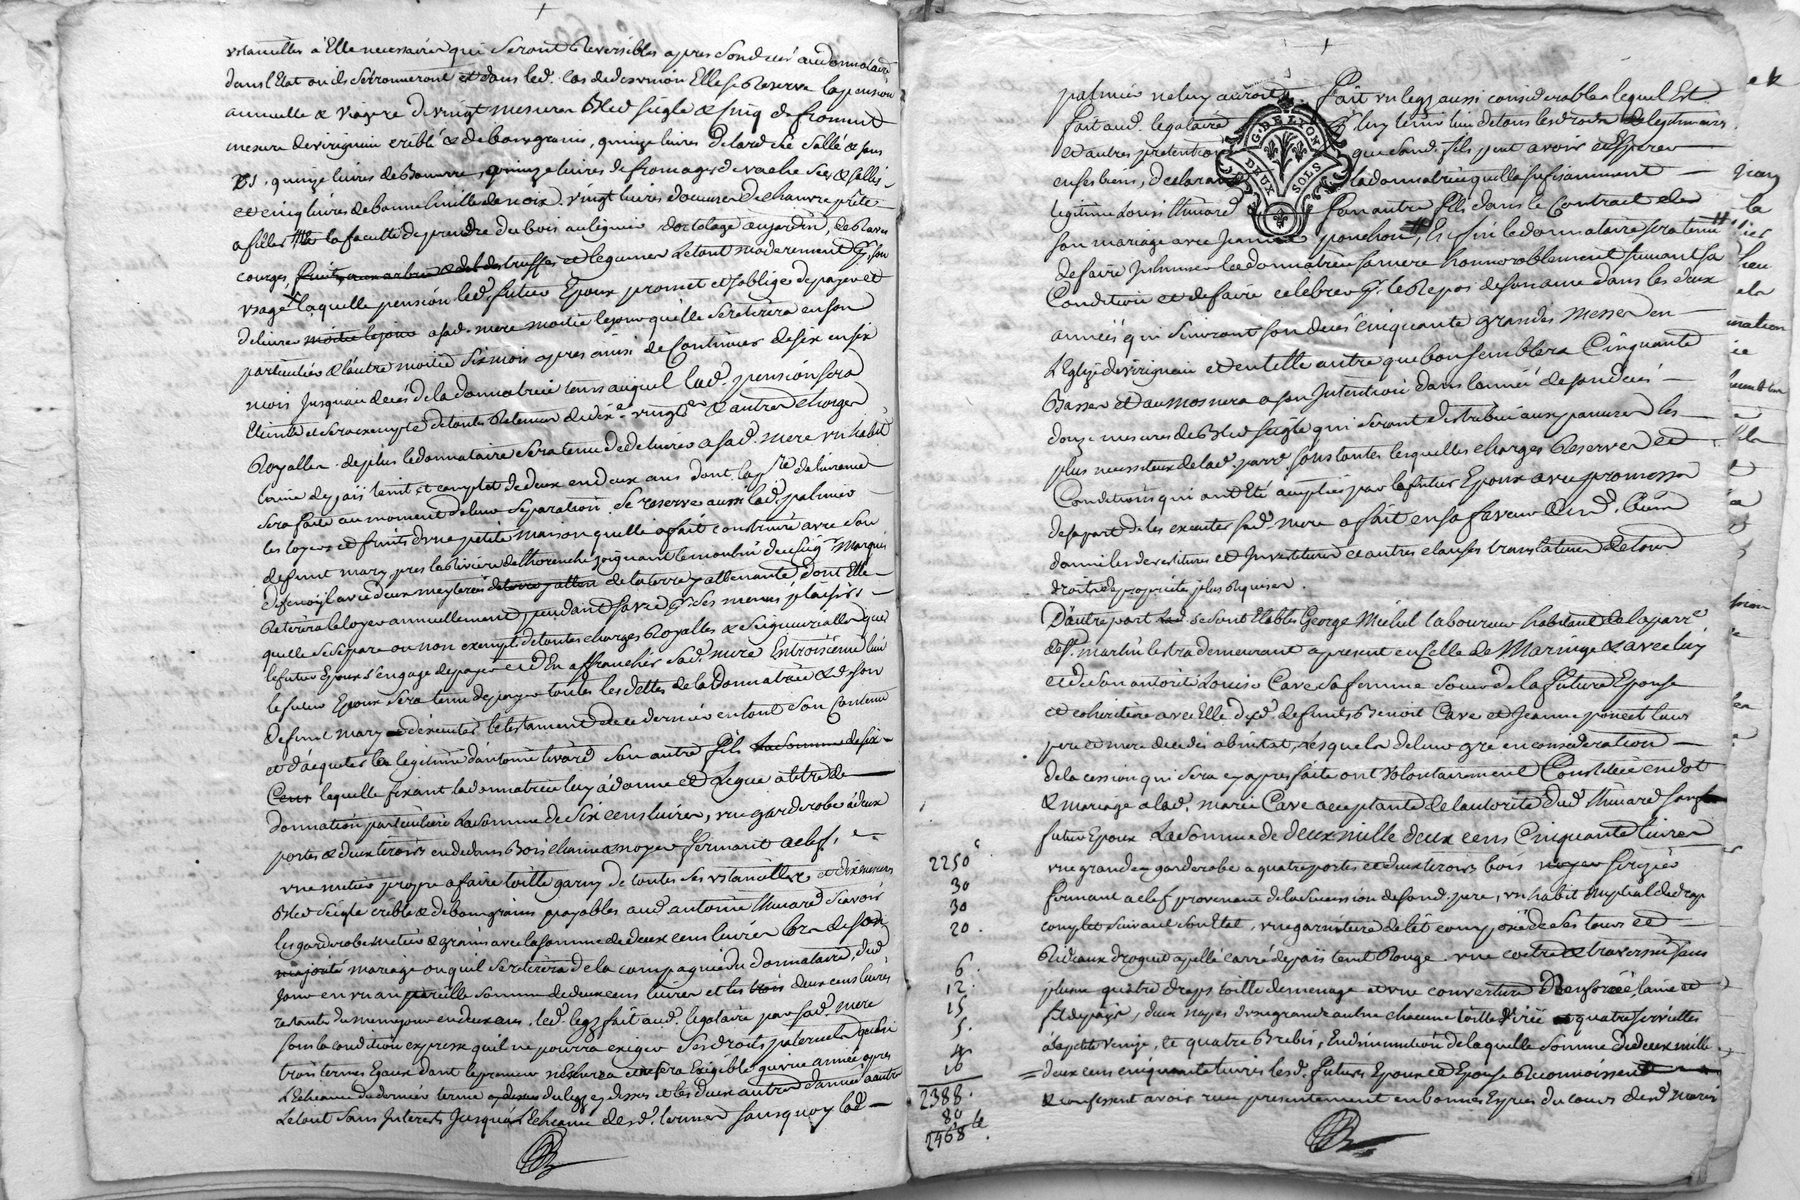 ustancilles a Elle necessaires qui seront Reversibles apres son decés au donnataire
dans l'Etat ou ils se trouveront et dans led. cas de desunion Elle se Reserve la pension
annuelle & viagere de vingt mesures Bled seigle & cinq de froment
mesure de virignieu criblé & de bon grains, quinze livres de lard sec sallé & sans
os, quinze livres de Beurre, quinze livres de fromages de vache secs & sallés
et cinq livres de bonne huille de noix, vingt livres d'oeuvre de chanvre prete
a filler la faculté de prendre du bois au legnier dortolage au jardin, de Raves
courges, fruits aux arbres & et legumes Letout moderement pr. son
usage laquelle pension led. futur Epoux promet et s'oblige de payer et
delivrer moitie le jour a sad. mere moitie le jour qu'elle se retirera en son
particulier & l'autre moitie six mois apres ainsi de continuer de six en six
mois jusqu'au decés de la donnatrice tems auquel lad. pension sera
Eteinte et sera exempte de toute Retenue de dixe. vingte. & autres charges
Royalles. de plus le donnataire sera tenu de delivrer a sad. mere un habit
laine du païs teint et complet de deux en deux ans dont la pre. delivrance
sera faite au moment de leur separation. se reserve aussi lad. palmier
les loyers et fruits d'une petite maison qu'elle a fait construire avec son
defunt mary pres la riviere de joignant le moulin du seigr. Marquis
avec deux de la terre y attenante, dont Elle
Retirera le loyer annuellement pendant sa vie pr. ses menus plaisirs
quelle se separe ou non exempt de toutes charges Royalles & seigneurialles que
le futur Epoux s'engage de payer et d'En affranchir sad. mere En troisieme lieu
le futur Epoux sera tenu de payer toutes les dettes de la donnatrice & de son
defunt mary d'executer le testament de ce dernier en tout son Contenu
et d'acquiter la legitime d'antoine thivard son autre fils La somme de six
Cens laquelle fixant la donnatrice luy a donne et Legue a titre de
donnation particuliere La somme de six cens livres, une garderobe a deux
portes & deux tiroirs en dedans Bois chaine & noyer fermant a clef,
une metier propre a faire toille garny de toutes ses ustancilles et dix mesures
Bled seigle criblé & de bon grains payables aud. antoine thivard scavoir
les garderobe metier & grains avec la somme de deux cens livres lors de son
majorité mariage ou qu'il se retirera de la compagnie du donnataire, dud.
jour en un an pareille somme de deux cens livres et les trois deux cens livres
restantes du meme jour en deux ans. led. legs fait aud. legataire par sad. mere
sous la condition expresse qu'il ne pourra exiger ses droits paternels qu'en
trois termes Egaux dont le premier n'Echerra et ne sera Exigible qu'une année apres
l'Echeance du dernier terme du legs cy dessus et les deux autres d'année a autre
Letout sans Interets jusqu'a l'Echeance desd. termes sans quoy lad.
palmier ne luy auroit fait un legs aussi considerable lequel Est
fait aud. legataire pr. luy tenir lieu de tous les droits de legitimaires
et autres pretentions que sond. fils peut avoir et Esperer
en ses biens, declarant la donnatrice qu'elle a suffisamment
legitimé Louis thivard son autre fils dans le Contract de
son mariage avec Jeanne ponchon, Et Enfin le donnataire sera tenu
de faire Inhumer la donnatrice sa mere honnorablement suivant sa
Condition et de faire celebrer pr. le Repos de son ame dans les deux
années qui suivront son decés cinquante grandes messes en
l'Eglise de virignieu et en telle autre que bon semblera Cinquante
Basses et aumosnera a son Intention dans l'année de son decés
douze mesures de Bled seigle qui seront distribuées aux pauvres les
plus necessiteux de lad. parre. sous toutes lesquelles charges Reserves et
Conditions qui ont Eté acceptées par le futur Epoux avec promesse
de sa part de les executer sad. mere a fait en sa faveur de sesd. biens
donnés les devetitures et Investitures et autres clauses translatives de tous
droits de propriete plus Requises.
D'autre part se sont Etablis George Michel laboureur habitant de la parre.
de st. martin lestra demeurant a present en celle de Maringe & avec luy
et de son autorité Louise Cave sa femme soeur de la future Epouse
et coheritiere avec Elle desd. defunts Benoit Cave et Jeanne poncet leurs
pere et mere decedés abintestat, lesquels de leur gré en consideration
de la cession qui sera cy apres faite ont volontairement Constitué en dot
& mariage a lad. marie Cave acceptante de l'autorité dud. thivard son
futur Epoux La somme de deux mille deux cens Cinquante livres
une grande garderobe a quatre portes et deux tiroirs bois noyer serizier
fermant a clef provenant de la succession de sond. pere, un habit nuptial de drap
complet suivant son Etat, une garniture de lit composée de ses tours et
Rideaux droguet apellé carré du païs teint Rouge. une coetre & traversin sans
plume quatre draps toille de menage et une couverture Renforcée, laine et
fil du païs, deux napes d'une grande aulne chacune toille quatre serviettes
a la petite venize, & quatre Brebis, En diminution de laquelle somme de deux mille
deux cens cinquante livres lesd. futurs Epoux et Epouse Reconnoissent
& confessent avoir recu presentement en bonnes Especes du cours desd. mariés
G. DE LYON
DEUX SOLS
2250
30
30
20.
6.
12.
15
5.
4
16
2388.
80
2468